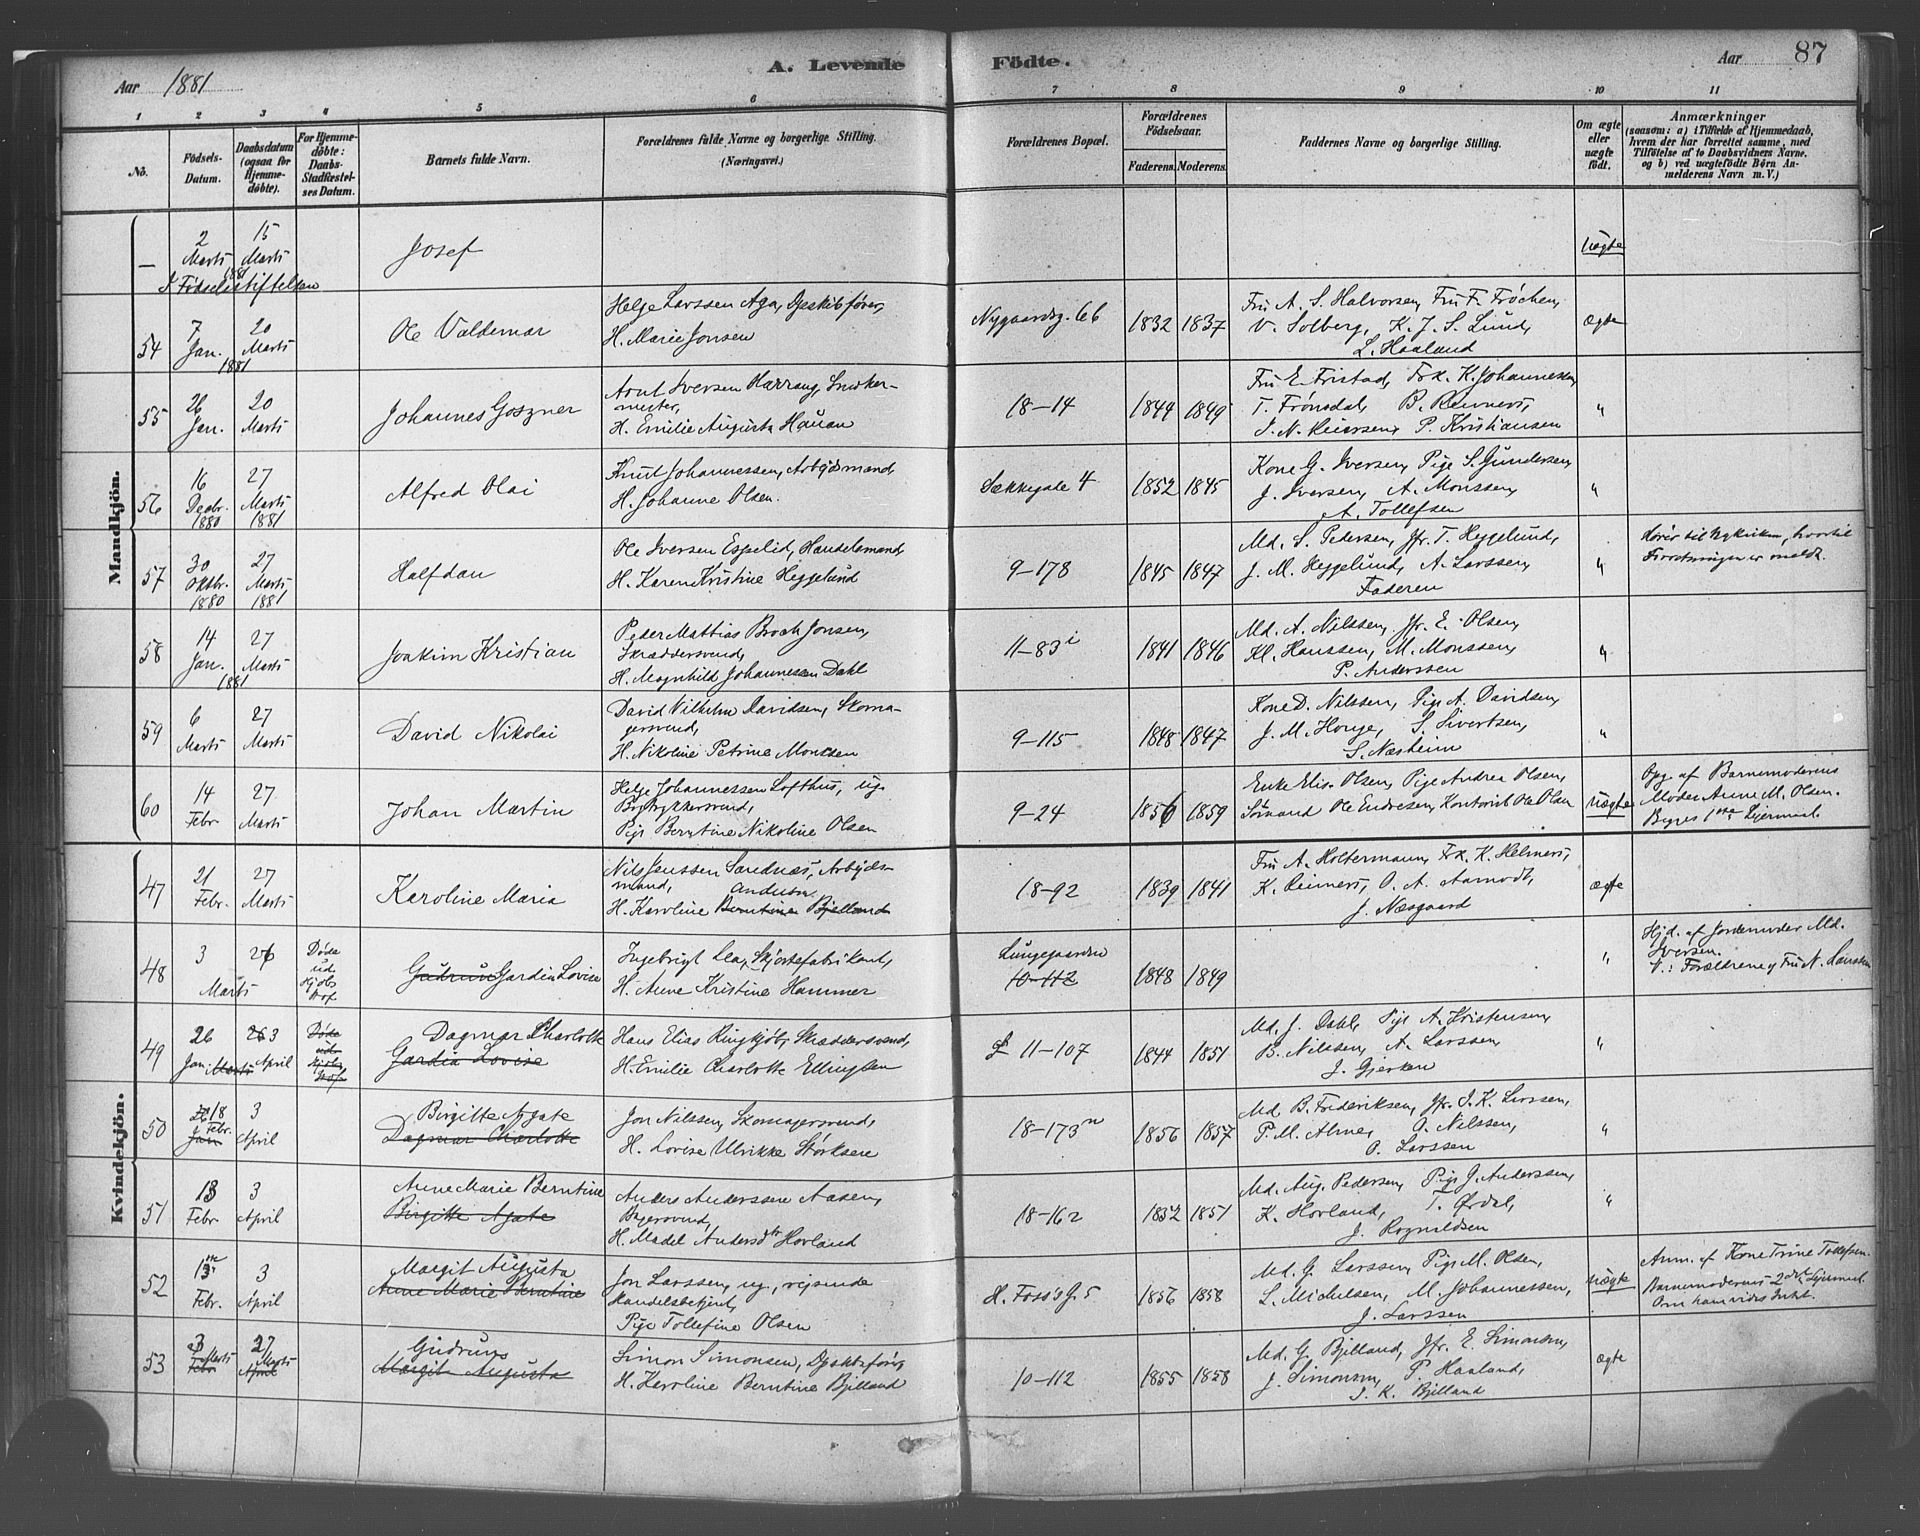 Aar 1881
A. Levende Födte.
Aar 87
1 2 3 4 5 6 7 8 9 10 11
No.
Födsels-
Datum.
Daabsdatum
(ogsaa for
Hjemme-
döbte).
For Hjemme-
döbte:
Daabs-
Stadfæstel-
ses Datum.
Barnets fulde Navn.
Forældrenes fulde Navne og borgerlige Stilling.
(Næringsvei.)
Forældrenes Bopæl.
Forældrenes
Födselsaar.
Faderens. Moderens.
Faddernes Navne og borgerlige Stilling.
Om ægte
eller
uægte
födt.
Anmærkninger
(saasom: a) i Tilfælde af Hjemmedaab,
hvem der har forrettet samme, med
Tilföielse af to Daabsvidners Navne,
og b) ved uægtefödte Börn An-
melderens Navn m. V.)
Mandkjön.
— 2 Marts 15 Marts 1881 Josef Uægte
I Fødselsstiftelsen
54 7 Jan. 20 Marts 1881 Ole Valdemar
Helge Larssen Aga, Dpskibsfører,
H. Marie Jonsen
Nygaardsg. 66 1832 1837
Fru A. S. Halvorsen, Fru F. Frøchen,
V. Solberg, K. J. S. Lund,
L. Haaland
ægte
55 26 Jan. 20 Marts Johannes Goszner
Arnt Iversen Harrang, Snedker-
mester,
H. Emilie Augusta Hauan
18-14 1844 1849
Fru E. Fristad, Frk. K. Johannesen,
T. Frønsdal, B. Reimers,
J. N. Reiersen, P. Kristiansen
"
56 16 Decbr. 1880 27 Marts 1881 Alfred Olai
Knut Johannessen, Arbejdsmand
H. Johanne Olsen.
Sækkegate 4 1852 1845
Kone G. Iversen, Pige S. Gundersen,
J. Iversen, A. Monssen,
A. Tollefsen
"
57 30 Oktbr. 1880 27 Marts 1881 Halfdan
Ole Iversen Espelid, Handelsmand,
H. Karen Kristine Heggelund
9-178 1845 1847
Md. S. Pedersen, Jfr. T. Heggelund,
J. M. Heggelund, A. Larssen,
Faderen
"
Hører til Nykirken, hvortil
Forretningen er meldt.
58 14 Jan. 1881 27 Marts Joakim Kristian
Peder Mattias Broch Jonsen,
Skræddersvend,
H. Magnhild Johannessen Dahl
11-83 i 1841 1846
Md. A. Nilssen, Jfr. E. Olsen,
Kl. Hanssen, M. Monssen,
P. Anderssen
"
59 6 Marts 27 Marts David Nikolai
David Vilhelm Davidsen, Skoma-
gersvend,
H. Nikoline Petrine Monssen
9-115 1848 1847
Kone D. Nilssen, Pige A. Davidsen,
J. M. Hauge, S. Sivertsen,
S. Næsheim
"
60 14 Febr 27 Marts Johan Martin
Helge Johannessen Lofthus, ug.
Bogtrykkersvend,
Pige Berntine Nikoline Olsen
9-24 1856 1859
Enke Elis. Olsen, Pige Andrea Olsen,
Sømand Ole Endresen, Kontorist Ole Olsen
Uægte
Opg. af Barnemoderens
Moder Anne M. Olsen.
Begges 1ste Lejermaal.
Kvindekjön.
47 21 Febr. 27 Marts Karoline Maria
Nils Jenssen Sandnæs, Arbejds-
mand, Andersen
H. Karoline Berntine Bjelland
18-92 1839 1841
Fru A. Holtermann, Frk. K. Helmers,
K. Reimers, O. A. Aamodt,
J. Næsgaard
ægte
48 3 26 Marts Døde ud Gudrun Gardin Lovise
Ingebrigt Lea, Skjortefabrikant,
H. Anne Kristine Hammer
Lungegaarden
10-112 1848 1849
"
Hjd. af Jordemoder Md.
Iversen.
V.: Forældrene og Fru N. Hansen
49 26 Jan. Marts 26 3 April Dagmar Charlotte
Gardia Lovise
Hans Elias Ringkjøb, Skræddersvend,
H. Emilie Charlotte Ellingsen
11-107 1844 1851
Md. J. Dahl, Pige A. Kristensen,
B. Nilssen, A. Larssen,
J. Gjerken
"
50 26 18 Febr. Jan 3 April Birgitte Agate
Dagmar Charlotte
Jon Nilssen, Skomagersvend,
H. Lovise Ulrikke Størksen
18-173 n 1856 1857
Md. B. Frederiksen, Jfr. J. K. Larssen,
P. M. Alme, O. Nilssen,
O. Larssen
"
51 13 Febr 3 April Anne Marie Berntine
Birgitte Agate
Anders Anderssen Aasen,
Bagersvend,
H. Madel Andersdtr Hovland
18-162 1852 1851
Md. Aug. Pedersen, Pige J. Anderssen,
K. Hovland, T. Ørdal,
J. Rognildsen
"
52 Febr. 3 April Margit Augusta
Anne Marie Berntine
Jon Larssen, ug., rejsende
Handelsbetjent,
Pige Tollefine Olsen
H. Foss's G. 5 1856 1858
Md. G. Larssen, Pige M. Olsen,
L. Michelsen, M. Johannessen,
J. Larssen
Uægte
Anm. af Kone Trine Tollefsen.
Barnemoderens 2det Lejermaal.
Om ham vides Intet.
53 3 Marts Febr 27 Marts April Gudrun
Margit Augusta
Simon Simonsen, Dpskibsfører,
H. Karoline Berntine Bjelland
10-112 1855 1858
Md. G. Bjelland, Jfr. E. Simonsen,
J. Simonsen, P. Haaland,
J. K. Bjelland
ægte